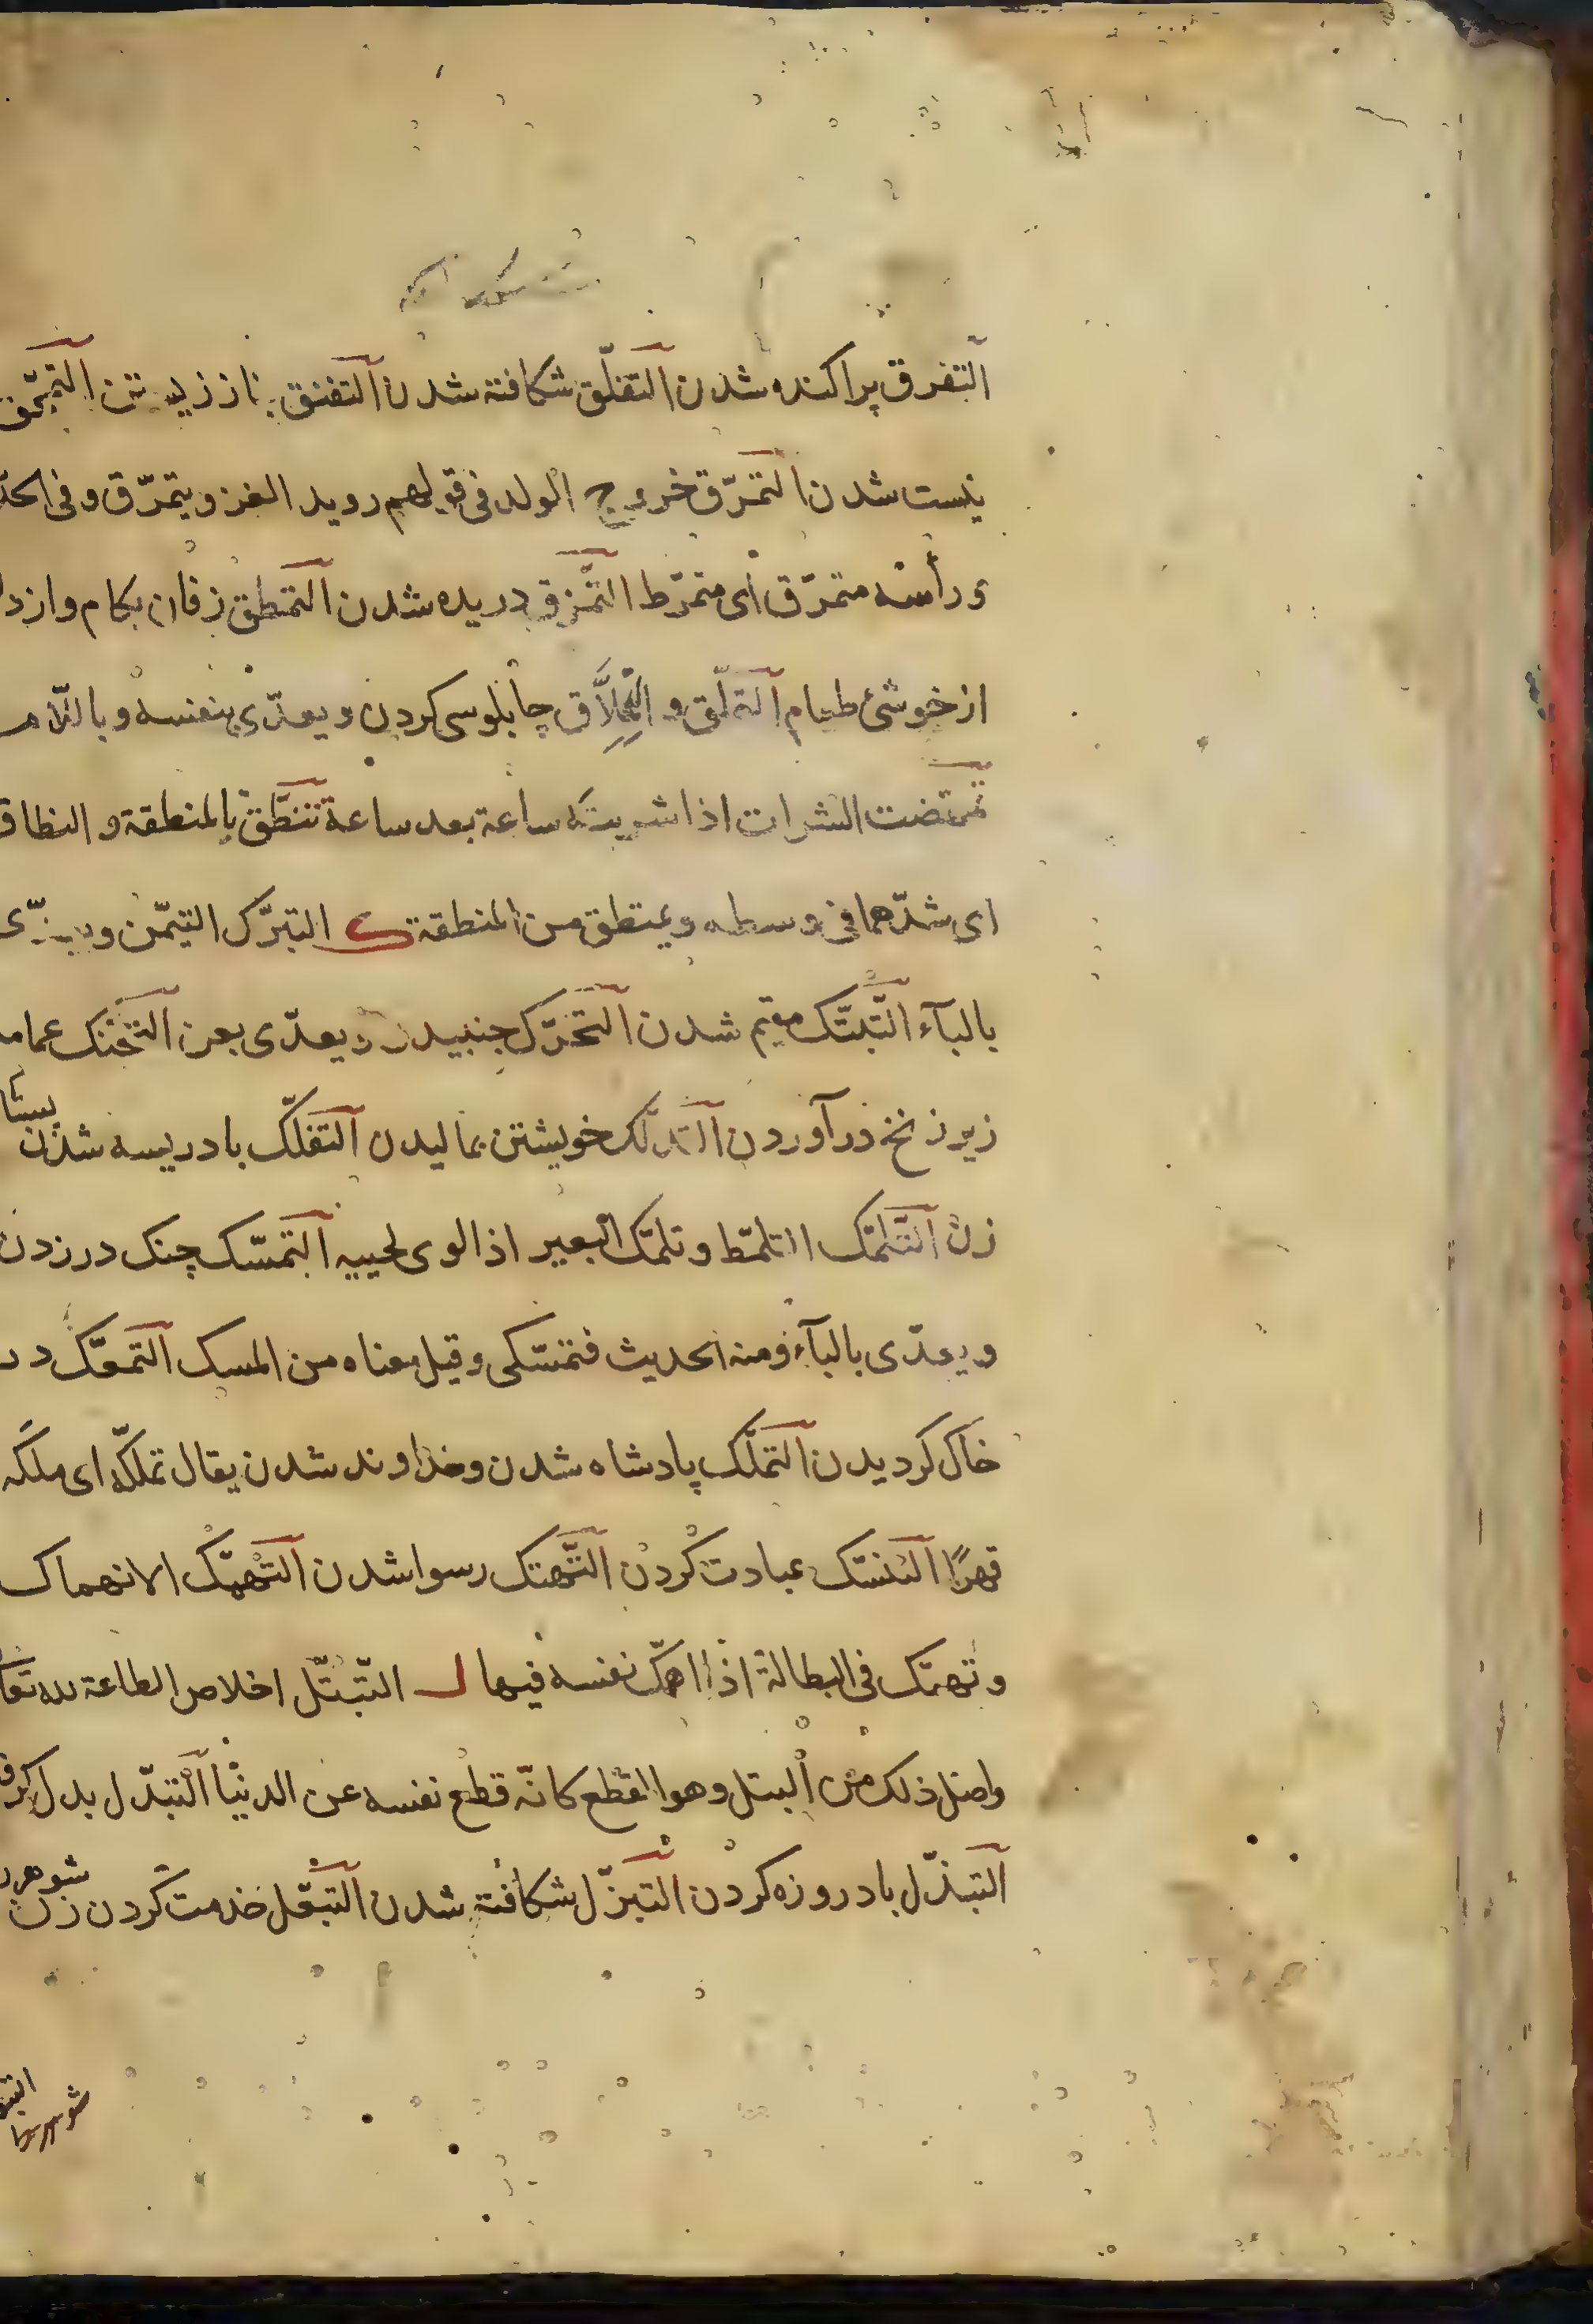 التفرق پراکنده شدن التفلّق شکافته شدن التفنق بناز زیستن التمحّق
نیست شدن التمرّق خروج الولد فی قولهم روید الغزو یتمرّق وفی الحد
ورأسه متمرّق ای متمرّط التمزّق دریده شدن التمطق زفان بکام وازد
از خوشیٔ طعام التملّق والتملّاق چاپلوسی کردن ویعدّی بنفسه وباللام
الشراب اذا شربته ساعة بعد ساعة تنطّق بالمنطقة والنطاق
ای شدّهما فی وسطه ویمنطق من المنطقة ک التبرّک التیمّن ویعدّی
بالبآء التبنّک مقیم شدن التحرّک جنبیدن ویعدّی بعن التحنّک عمامه
زیر زنخ درآوردن التدلّک خویشتن بمالیدن التفلّک بادریسه شدن پستان
زن التلمّک التلمّظ وتلمّک البعیر اذا لوی لحییه التمسّک چنک در زدن
ویعدّی بالبآء ومنه الحدیث فتمسّکی وقیل معناه من المسک التمعّک در
خاک کردیدن التملّک پادشاه شدن وخداوند شدن یقال تملّکه ای ملکه
قهرًا التنسّک عبادت کردن التهتّک رسوا شدن التهمّک الانهماک
وتهمّک فی البطالة اذا اهمک نفسه فیها ل التبتّل اخلاص الطاعة لله تعا
واصل ذلک من البتل وهو القطع کانّه قطع نفسه عن الدنیا التبدّل بدل کرفتن
التبذّل بادروزه کردن التبزّل شکافته شدن التبعّل خدمت کردن زن شوهر را